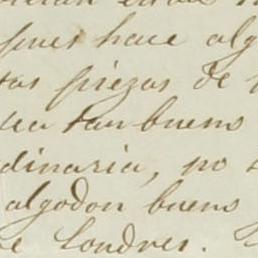 pues hace alg
tas piezas de
sea tan bueno
dinaria, no
algodon buено
e Londres.